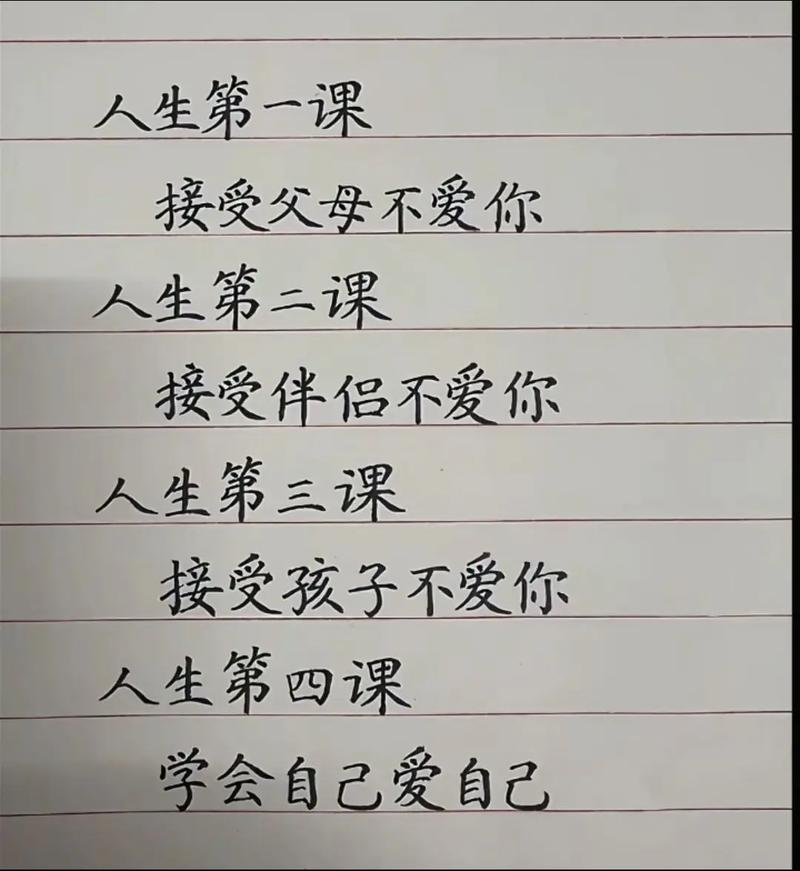 人生第一课
接受父母不爱你
人生第二课
接受伴侣不爱你
人生第三课
接受孩子不爱你
人生第四课
学会自己爱自己